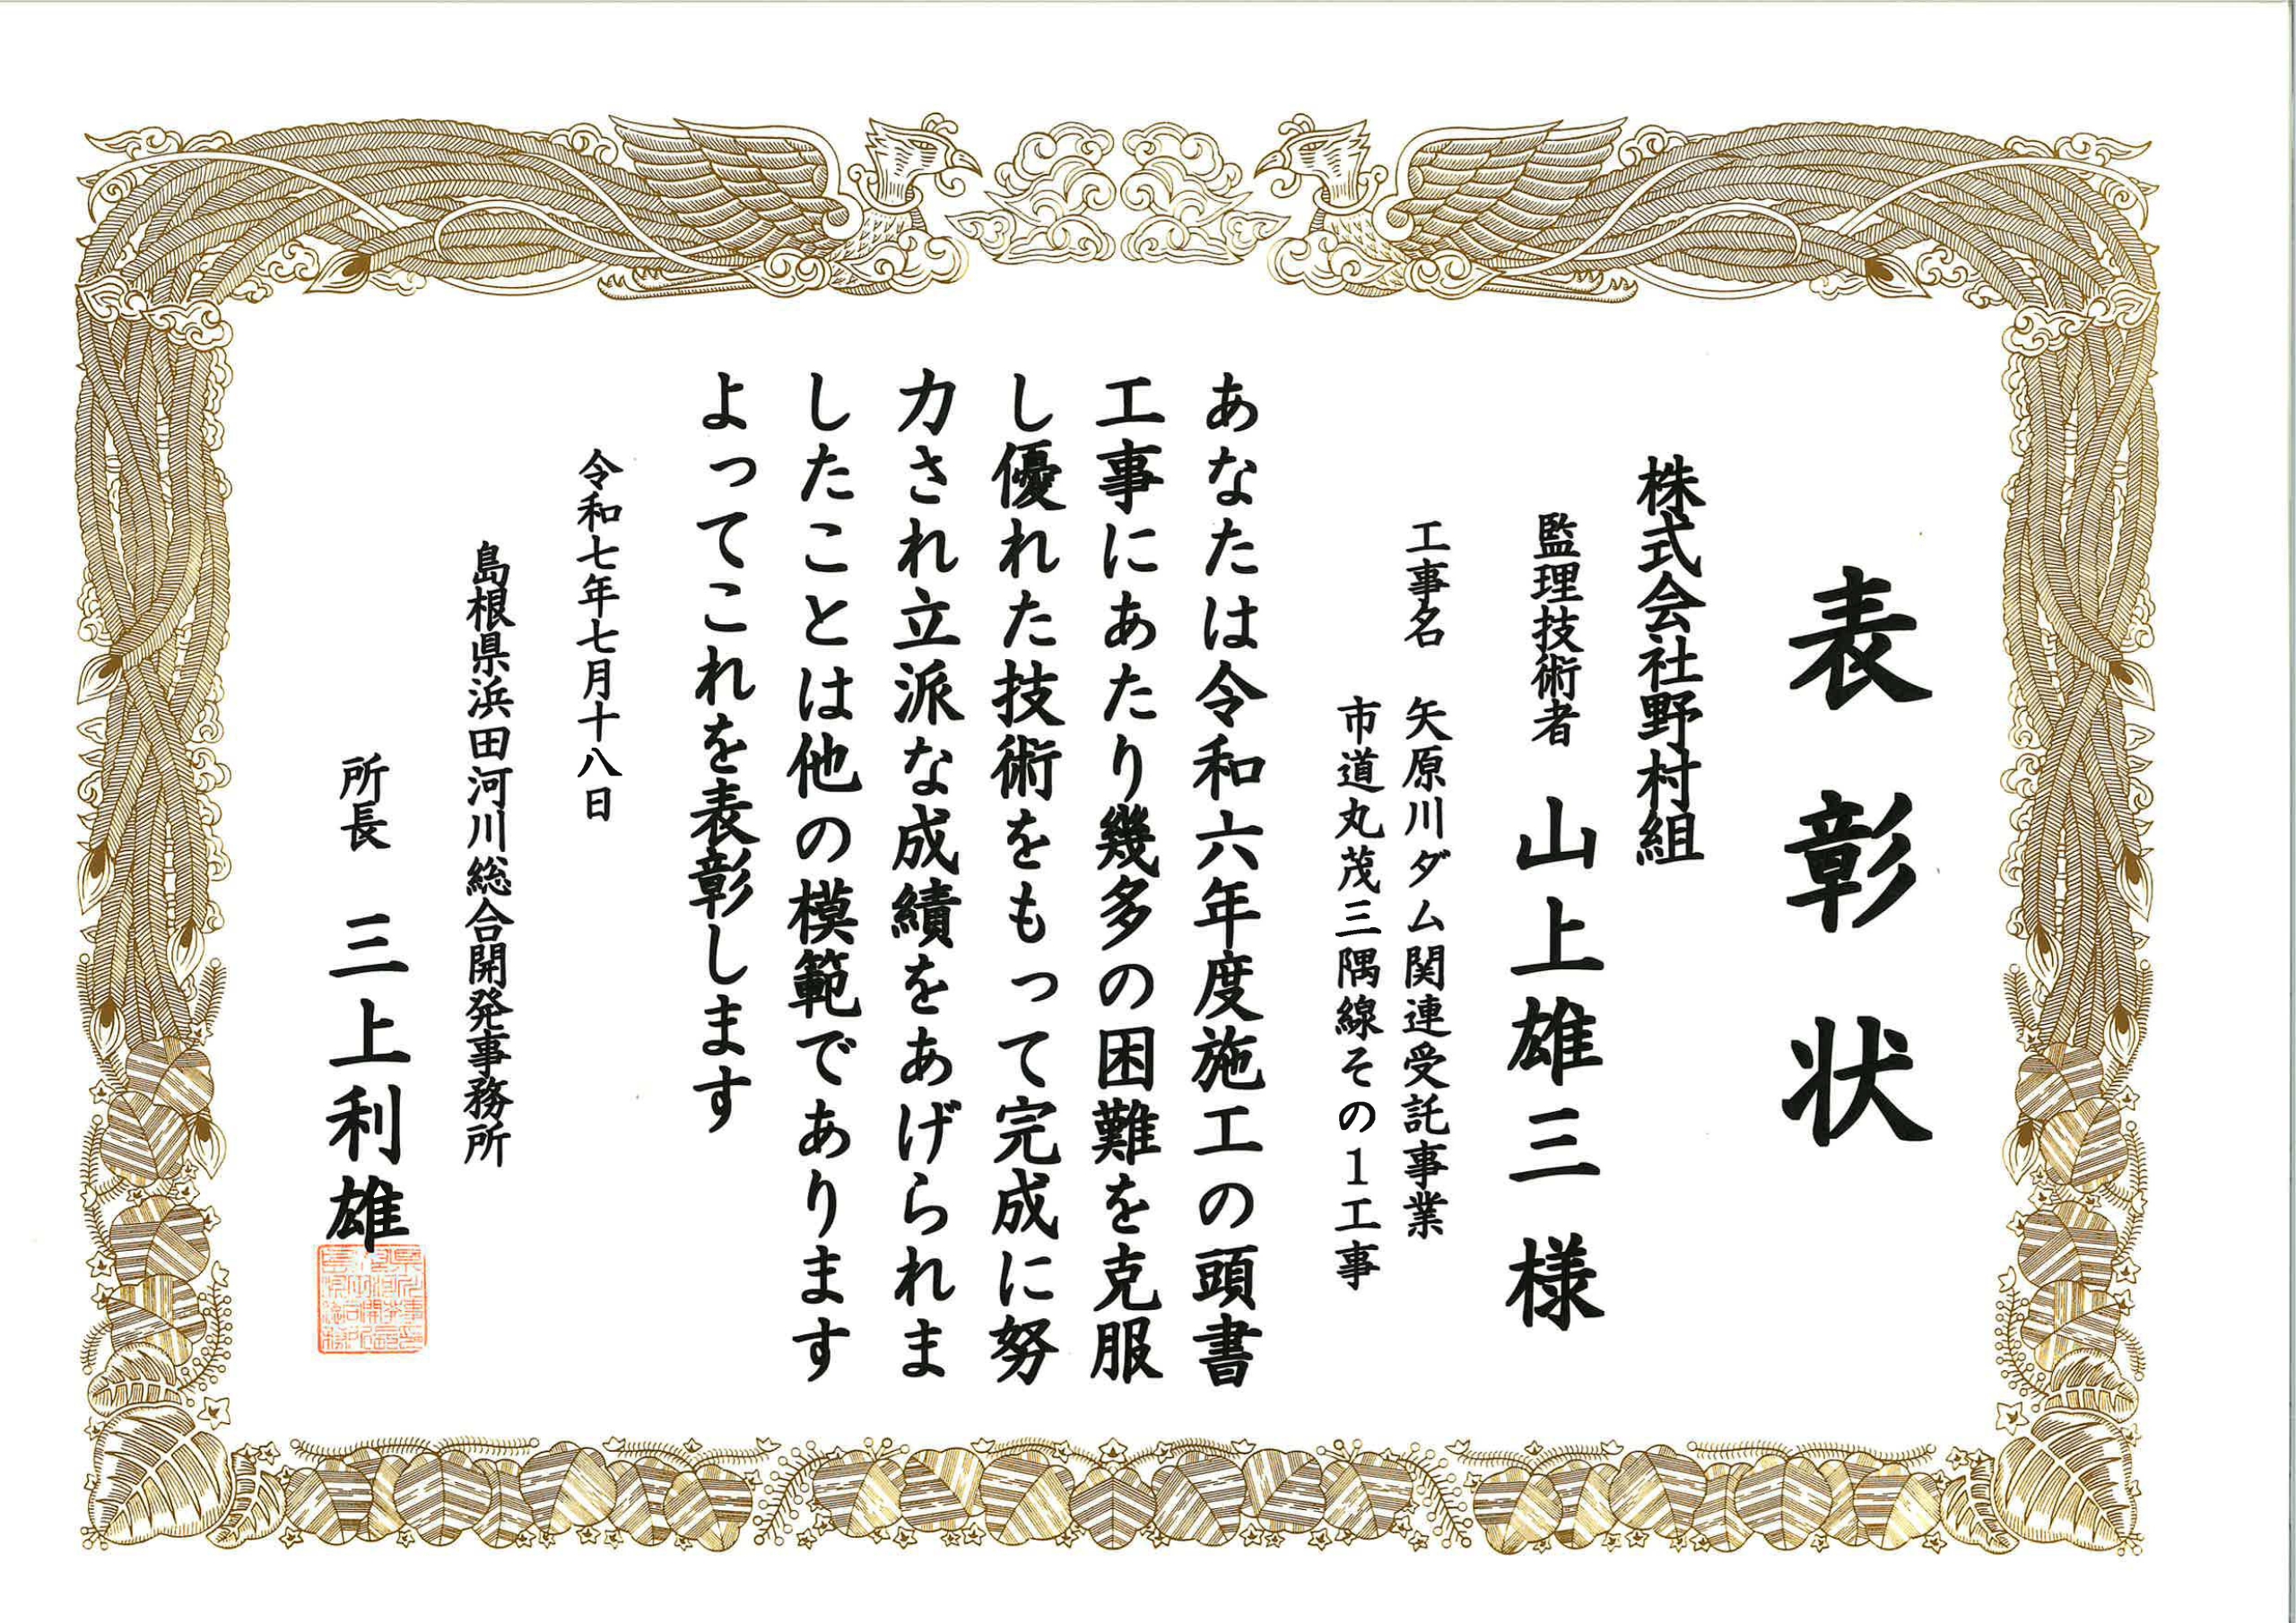 表彰状
株式会社野村組
監理技術者 山上雄三 様
工事名 矢原川ダム関連受託事業
市道丸茂三隅線その1工事
あなたは令和六年度施工の頭書
工事にあたり幾多の困難を克服
し優れた技術をもって完成に努
力され立派な成績をあげられま
したことは他の模範であります
よってこれを表彰します
令和七年七月十八日
島根県浜田河川総合開発事務所
所長 三上利雄